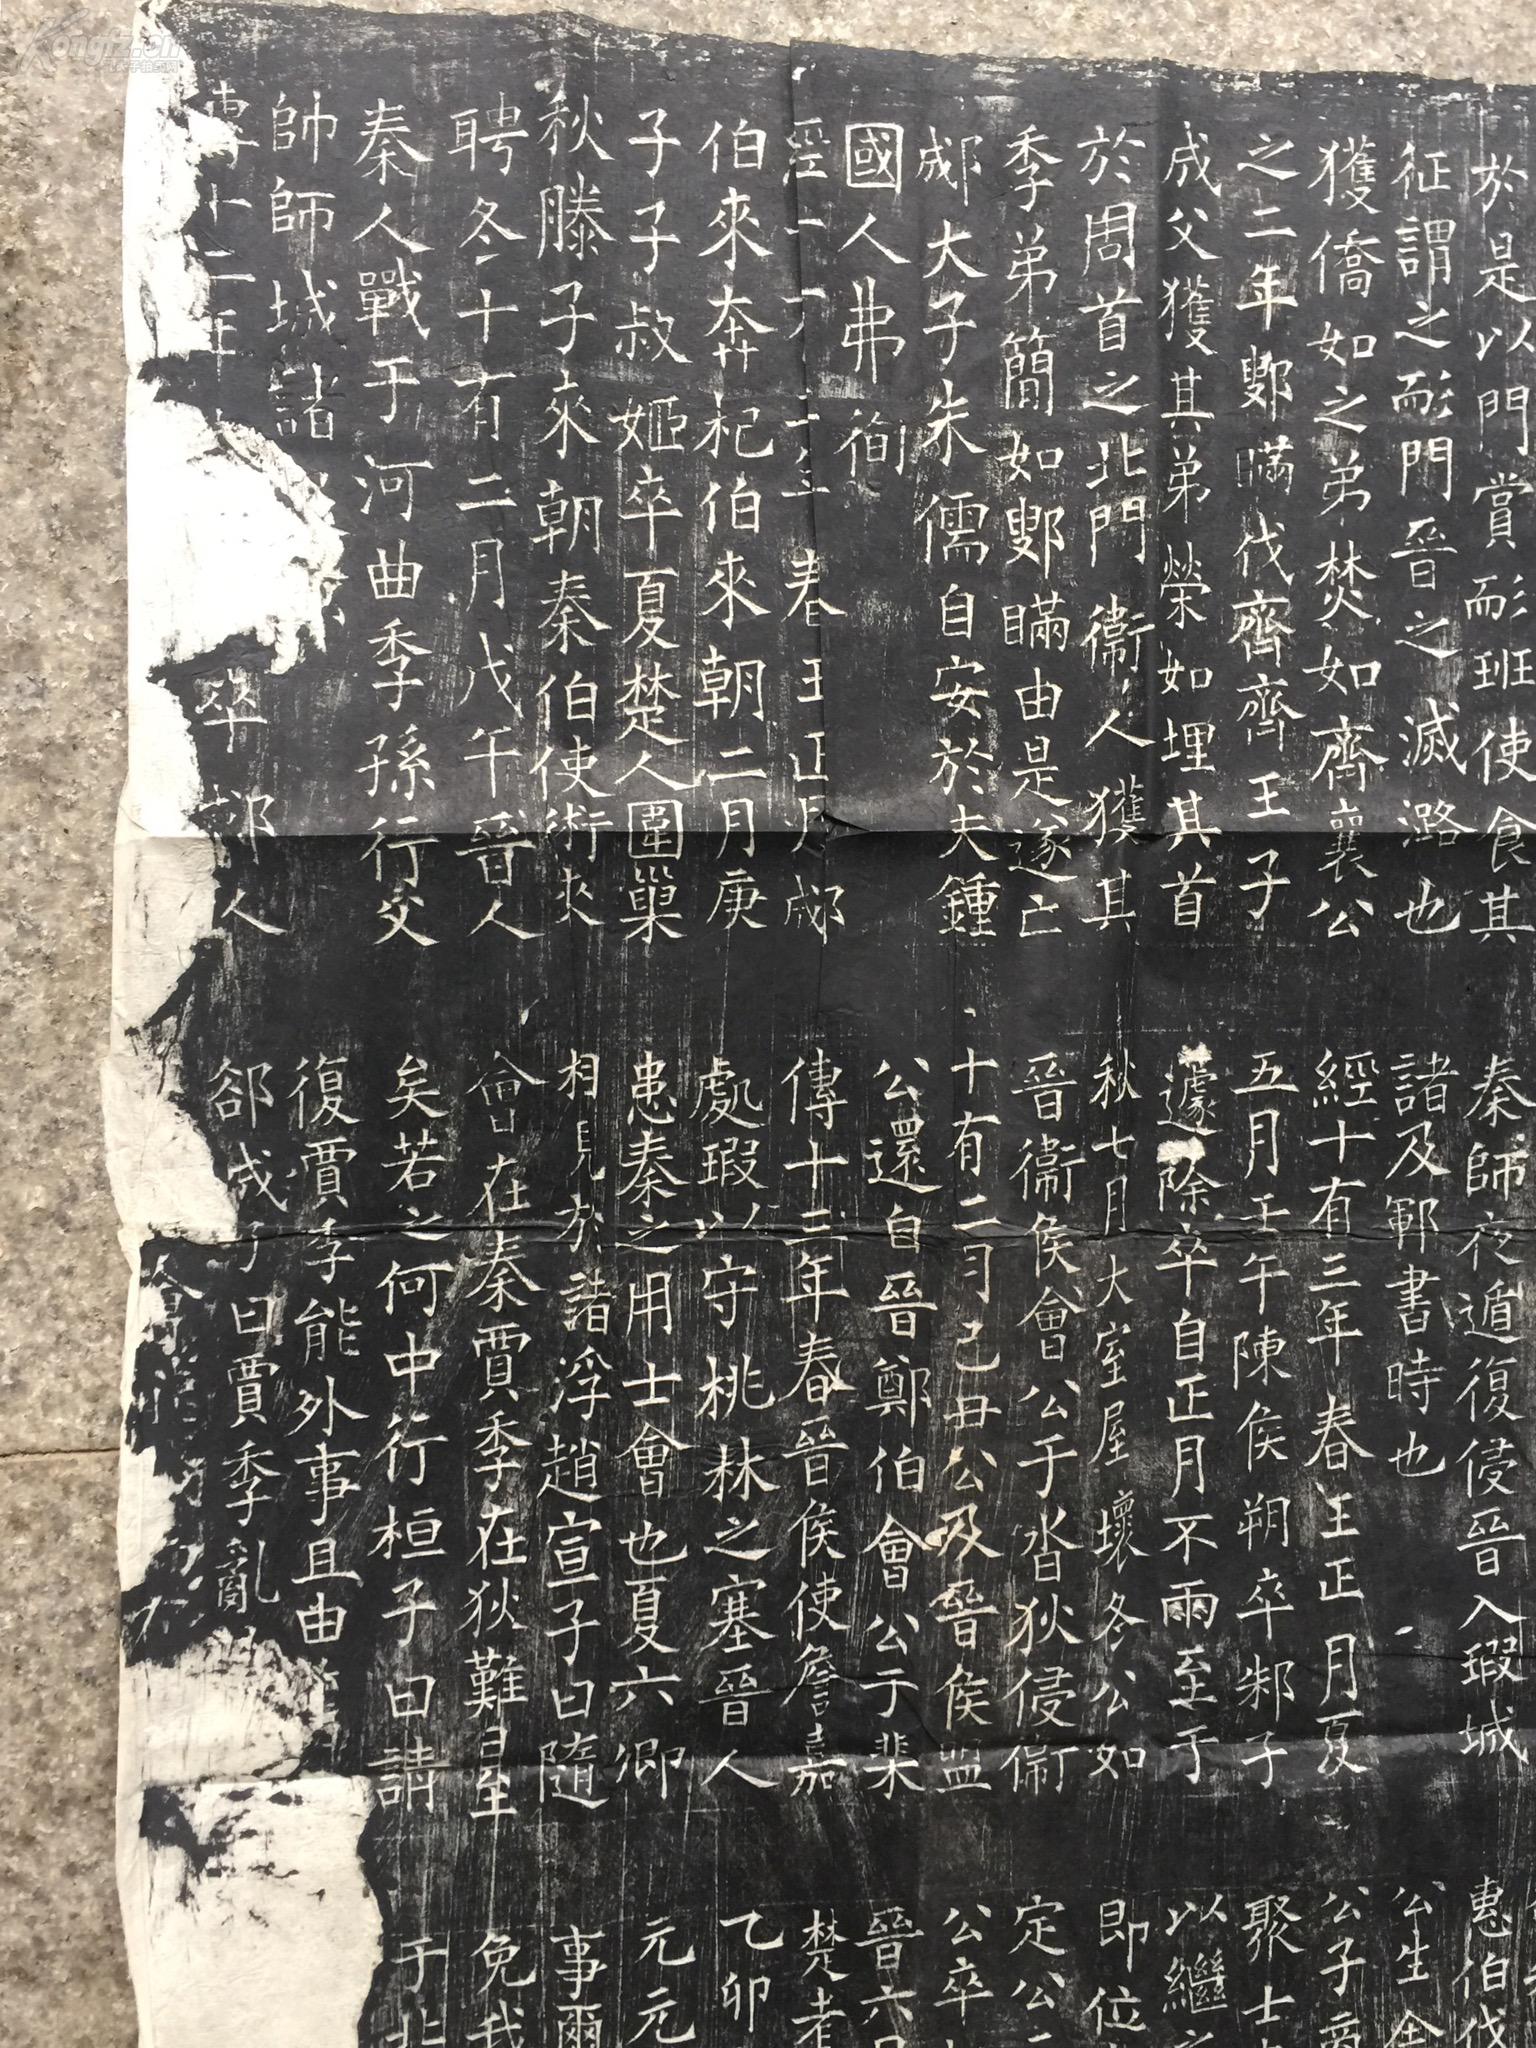 於是以門賞耏班使食其
征謂之耏門晉之滅潞也
獲僑如之弟焚如齊襄公
之二年鄋瞞伐齊齊王子
成父獲其弟榮如埋其首
於周首之北門衞人獲其
季弟簡如鄋瞞由是遂亡
郕大子朱儒自安於夫鍾
國人弗徇
春王正月郕
伯來奔杞伯來朝二月庚
子子叔姬卒夏楚人圍巢
秋滕子來朝秦伯使術來
聘冬十有二月戊午晉人
秦人戰于河曲季孫行父
帥師城諸
傳十二年卒郕人
秦師夜遁復侵晉入瑕城
諸及鄆書時也
經十有三年春王正月夏
五月壬午陳侯朔卒邾子
蘧蒢卒自正月不雨至于
秋七月大室屋壞冬公如
晉衞侯會公于沓狄侵衞
十有二月己丑公及晉侯盟
公還自晉鄭伯會公于棐
傳十三年春晉侯使詹嘉
處瑕以守桃林之塞晉人
患秦之用士會也夏六卿
相見於諸浮趙宣子曰隨
會在秦賈季在狄難日至
矣若之何中行桓子曰請
復賈季能外事且由
郤成子曰賈季亂
惠伯伐
公生
公子商
聚士
以繼
即位
定公
公卒
晉六
楚老
乙卯
元元
事爾
免我
于北